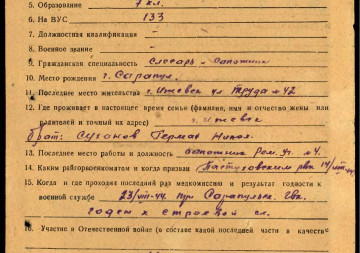 5. Образование 7 кл.
6. На ВУС 133
7. Должностная квалификация -
8. Военное звание -
9. Гражданская специальность слесарь - сапожник
10. Место рождения г. Сарапул.
11. Последнее место жительства г. Ижевск ул Труда №42
12. Где проживает в настоящее время семья (фамилия, имя и отчество жены или
родителей и точный их адрес) г. Ижевск
брат: Суханов Герман Никол.
13. Последнее место работы и должность сапожник Рем. уч. №4.
14. Каким райгорвоенкоматом и когда призван Пастуховским рвк 14/VIII-44г
15. Когда и где проходил последний раз медкомиссию и результат годности к
военной службе 23/VIII-44г при Сарапульск. гвк.
годен к строевой сл.
16. Участие в Отечественной войне (в составе какой последней части в качестве